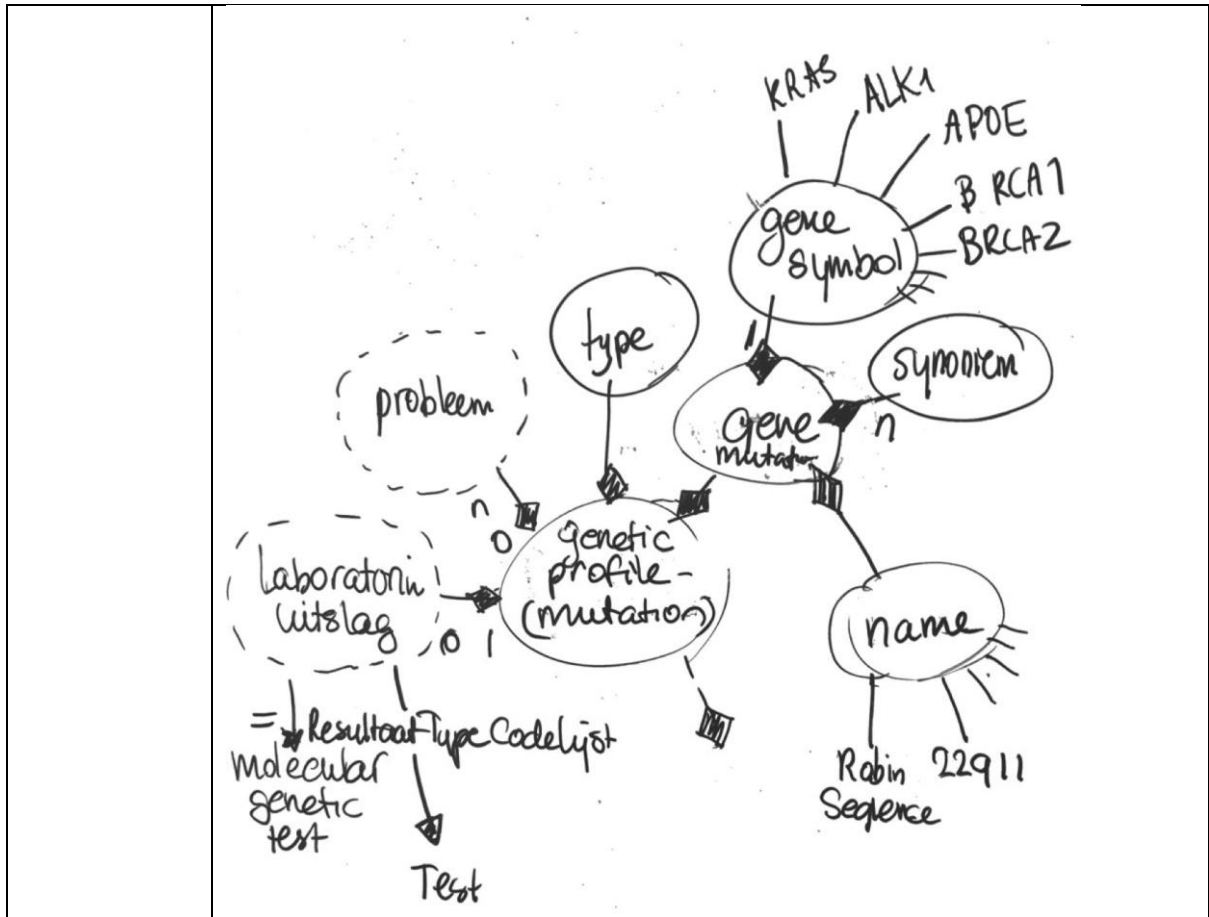 KRAS
ALK1
APOE
BRCA1
BRCA2
gene
symbol
type
synoniem
1
probleem
gene
mutation
n
n
0
genetic
profile -
(mutation)
Laboratorium
uitslag
0 1
name
= ResultaatTypeCodelijst
molecular
genetic
test
Robin
Sequence
22911
Test